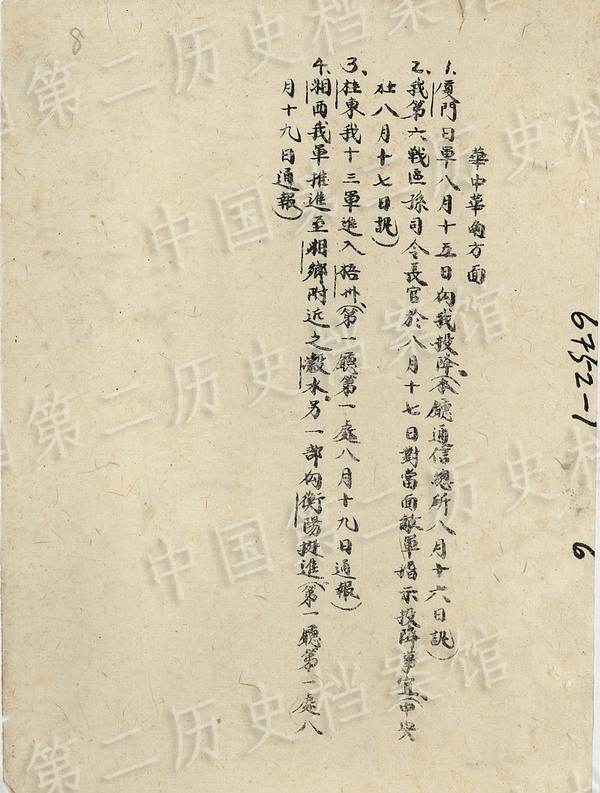 華中華南方面
1、厦門日軍八月十五日向我投降。(本廳通信總所八月十六日訊)
2、我第六戰區孫司令長官於八月十七日對當面敵軍指示投降事宜、(中央
社八月十七日訊)
3、桂東我十三軍進入梧州、(第一廳第一處八月十九日通報)
4、湘西我軍推進至湘鄉附近之瀔水。另一部向衡陽挺進、(第一廳第一處八
月十九日通報)
8
6752-1
6
中国第二历史档案馆